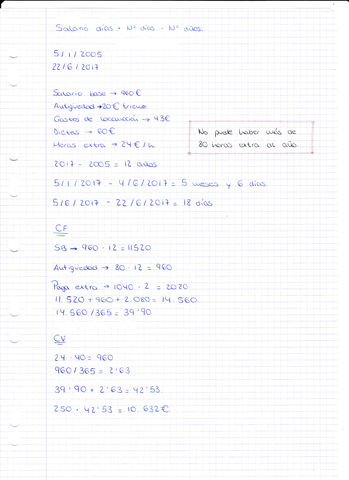 Salario días • Nº días • Nº días.
5/1/2005
22/6/2017
Salario base → 960€
Antigüedad → 20€ trienio
Gastos de locomoción → 43€
Dietas → 60€
Horas extra → 24€/h.
No puede haber más de
80 horas extra al año.
2017 - 2005 = 12 años
5/1/2017 - 4/6/2017 = 5 meses y 6 días
5/6/2017 - 22/6/2017 = 18 días
CF
SB → 960 · 12 = 11520
Antigüedad → 80 · 12 = 960
Paga extra → 1040 · 2 = 2080
11.520 + 960 + 2.080 = 14.560
14.560/365 = 39'90
CV
24 · 40 = 960
960/365 = 2'63
39'90 + 2'63 = 42'53
250 · 42'53 = 10.632€